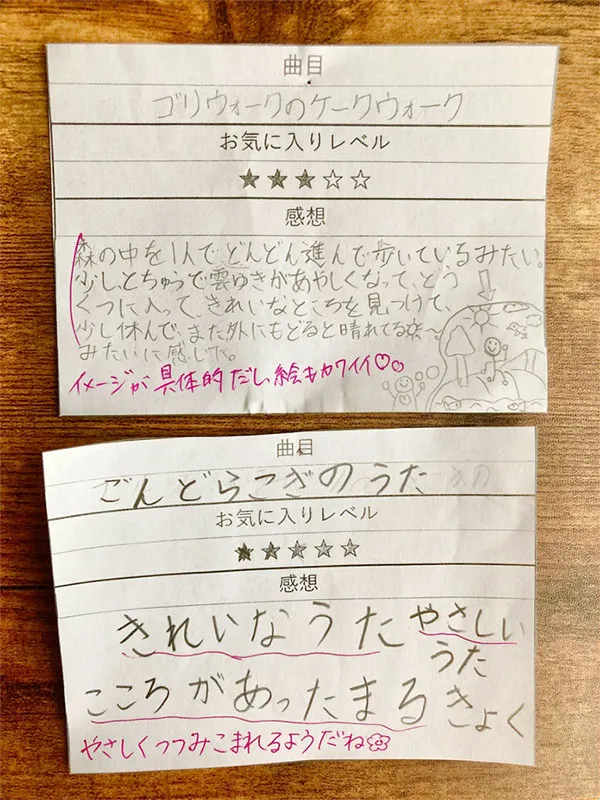 曲目
ゴリウォークのケークウォーク
お気に入りレベル
★★★☆☆
感想
森の中を1人で、どんどん進んで歩いているみたい。
少し、とちゅうで雲ゆきがあやしくなって、どう
くつに入って、きれいなところを見つけて、
少し休んで、また外にもどると晴れてる〜
みたいに感じた。
イメージが具体的だし、絵もカワイイ♡。
曲目
ごんどらこぎのうた
お気に入りレベル
★★★★★
感想
きれいなうた やさしい
うた
こころがあったまる きょく
やさしくつつみこまれるようだね